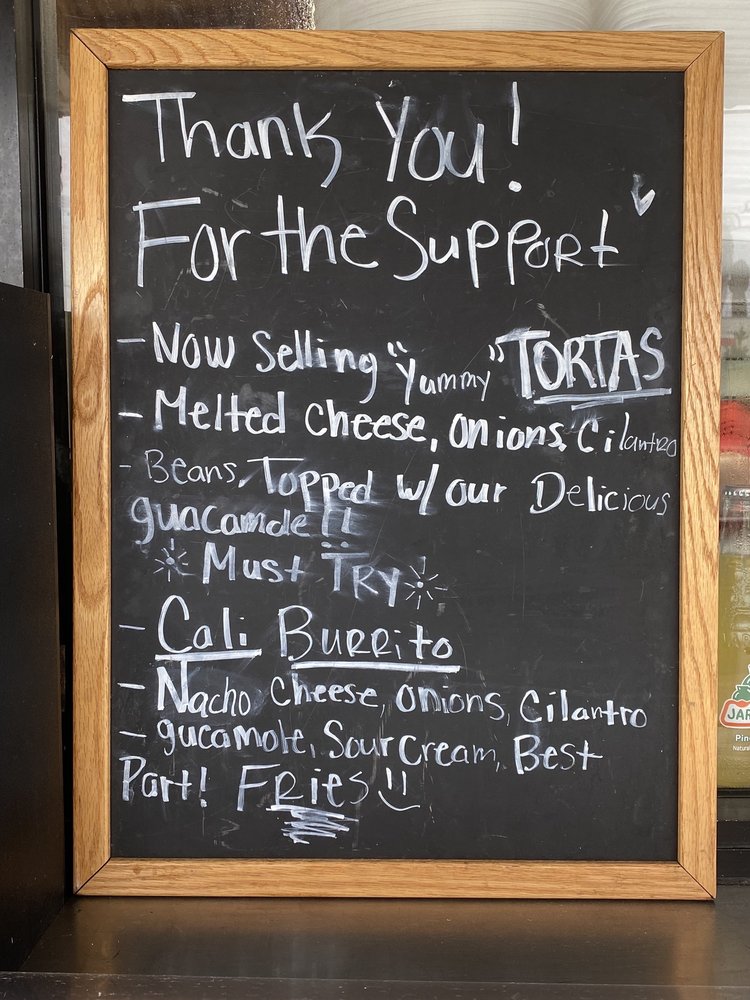 Thank You!
For the Support
- Now Selling "Yummy" TORTAS
- Melted Cheese, Onions, Cilantro
- Beans, Topped w/ our Delicious
guacamole!!
Must TRY
- Cali Burrito
- Nacho Cheese, Onions, Cilantro
- gucamole, Sour Cream, Best
Part! FRies
JAR
Pin
Natural